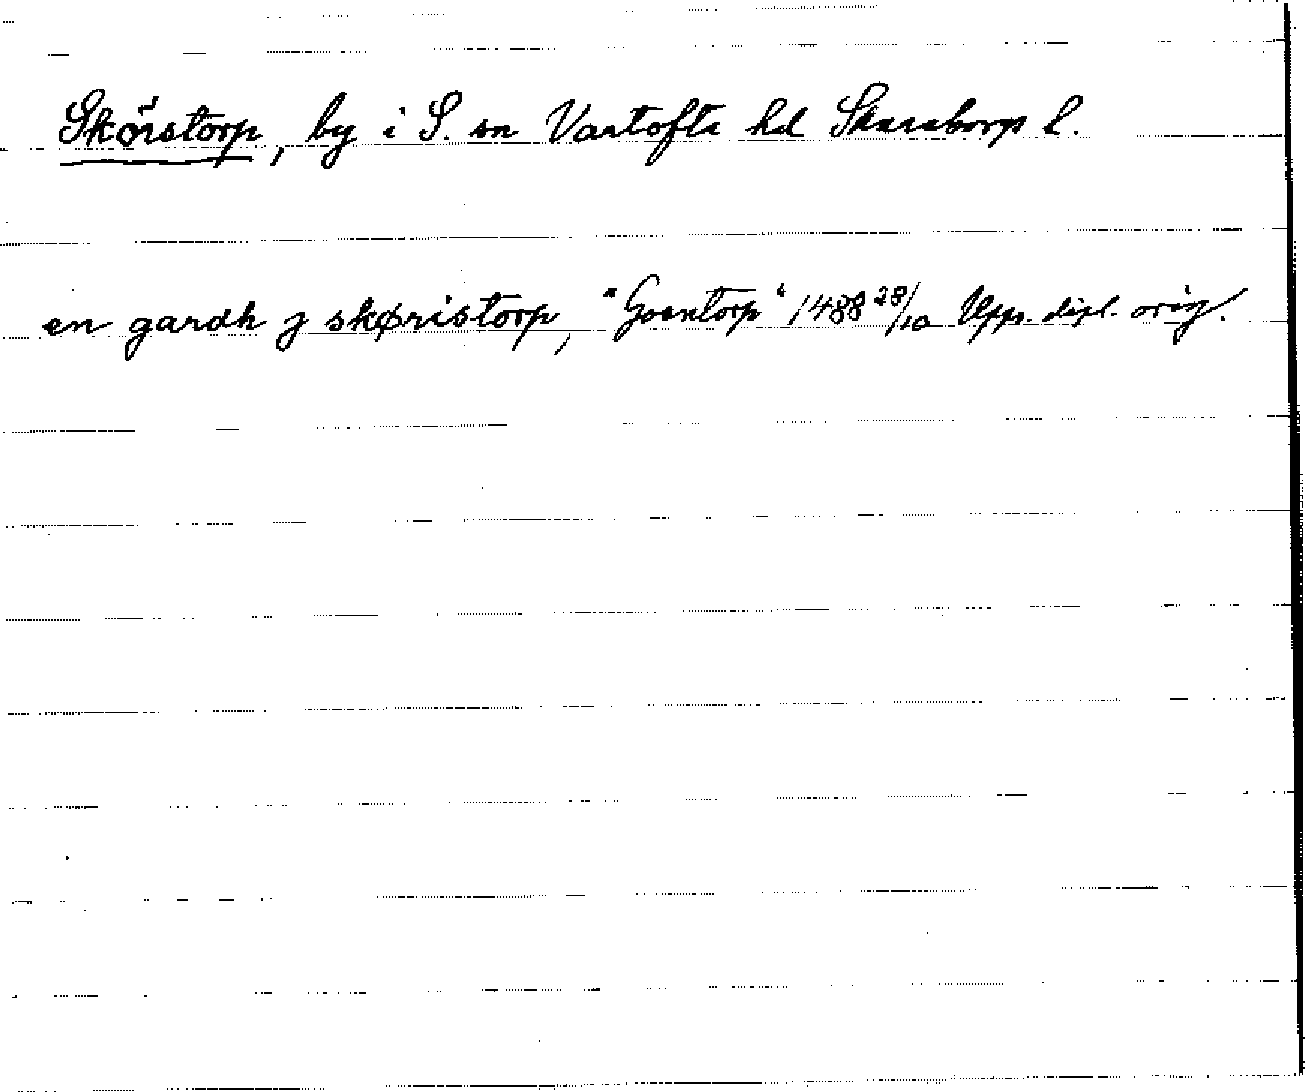 Skörstorp, by i S. sn Vartofta hd Skaraborgs l.
en gardh j skøristorp, "Goentorp" 1488 28/10 Upps. dipl. orig.